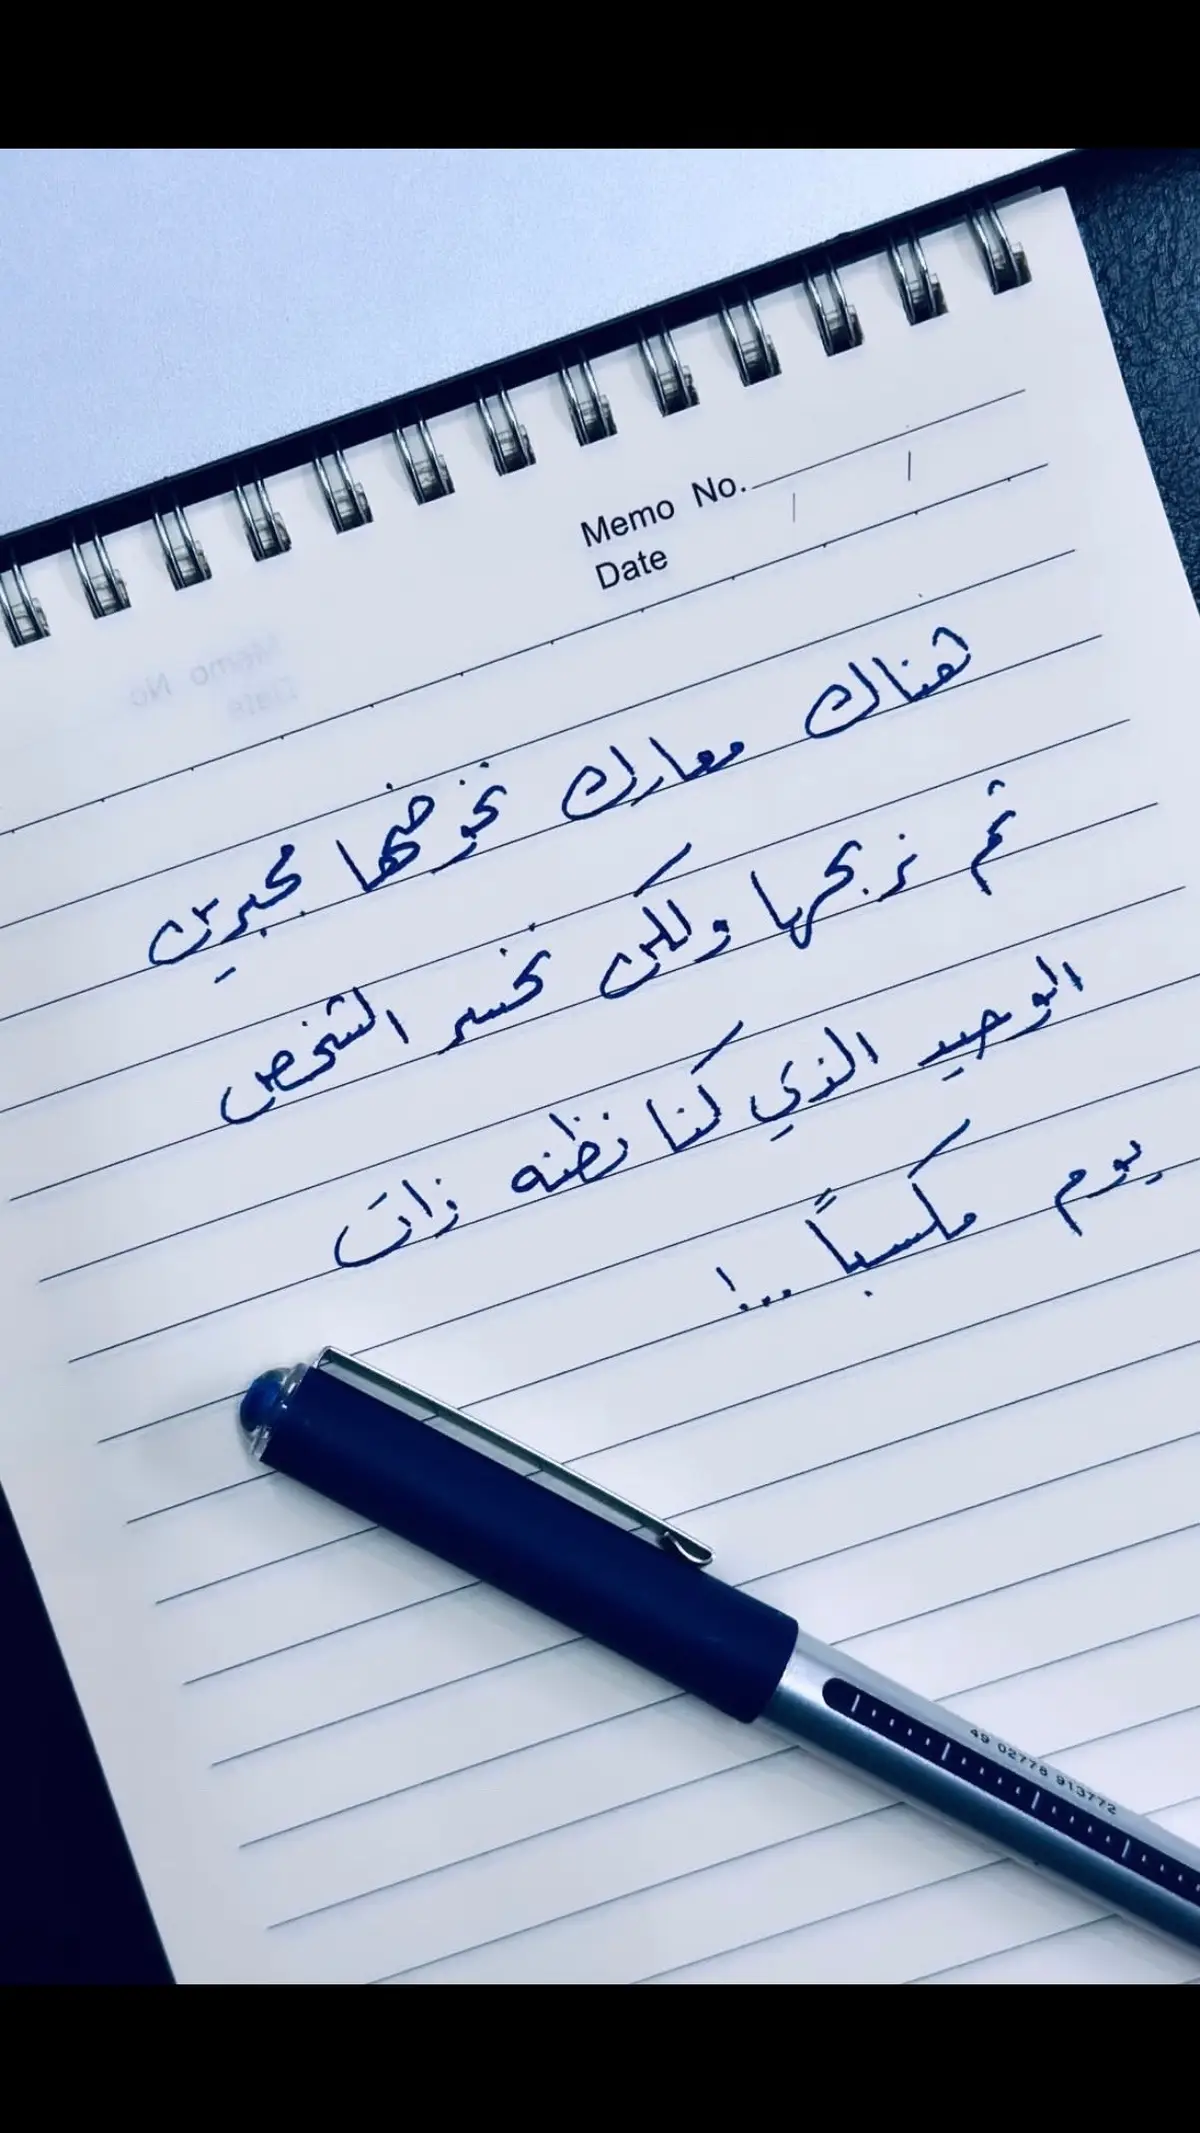 Memo No.
Date
هناك معارك نخوضها مجبرين
ثم نربحها ولكن نخسر الشخص
الوحيد الذي كنا نظنه ذات
يوم مكسباً ...!
49 02778 913772